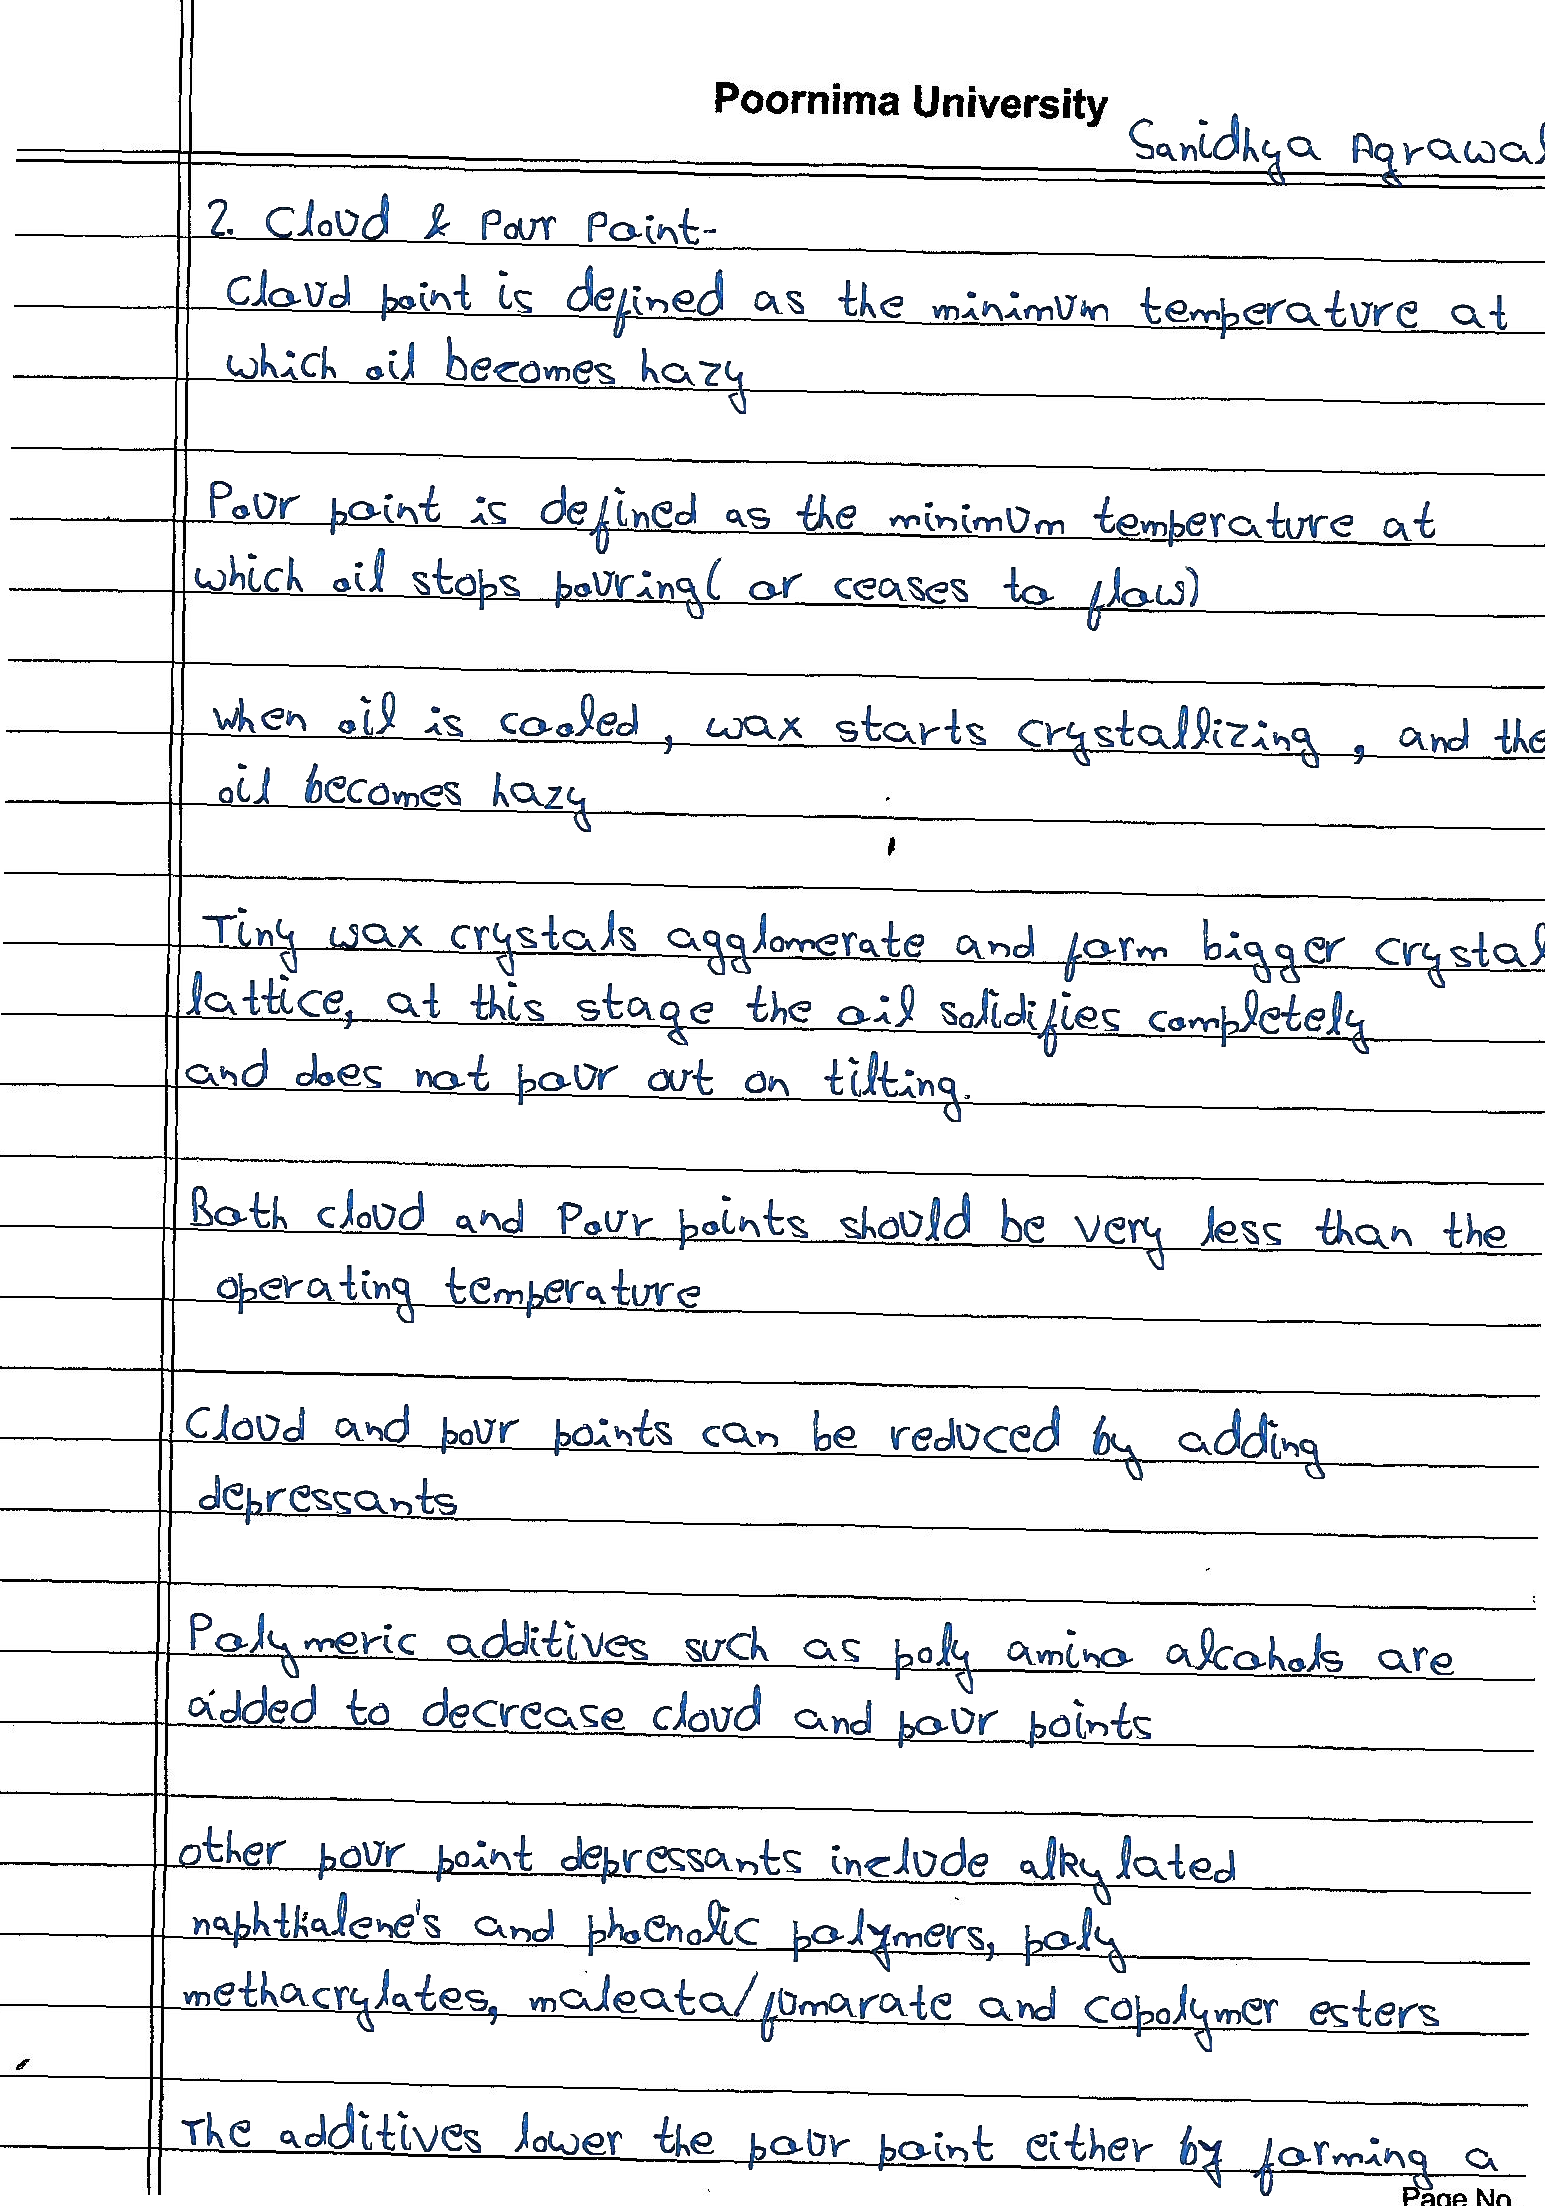 Poornima University
Sanidhya Agrawal
2. Cloud & Pour Point-
Cloud point is defined as the minimum temperature at
which oil becomes hazy
Pour point is defined as the minimum temperature at
which oil stops pouring( or ceases to flow)
when oil is cooled, wax starts crystallizing, and the
oil becomes hazy
Tiny wax crystals agglomerate and form bigger crystal
lattice, at this stage the oil solidifies completely
and does not pour out on tilting.
Both cloud and Pour points should be very less than the
operating temperature
Cloud and pour points can be reduced by adding
depressants
Polymeric additives such as poly amino alcohols are
added to decrease cloud and pour points
other pour point depressants include alkylated
naphthalene's and phoenolic polymers, poly
methacrylates, maleata/fumarate and copolymer esters
The additives lower the pour point either by forming a
Page No